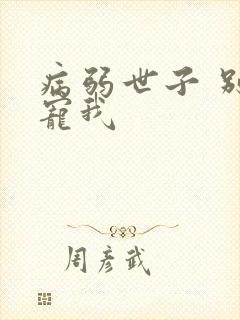 病弱世子 别
宠我
周彦武